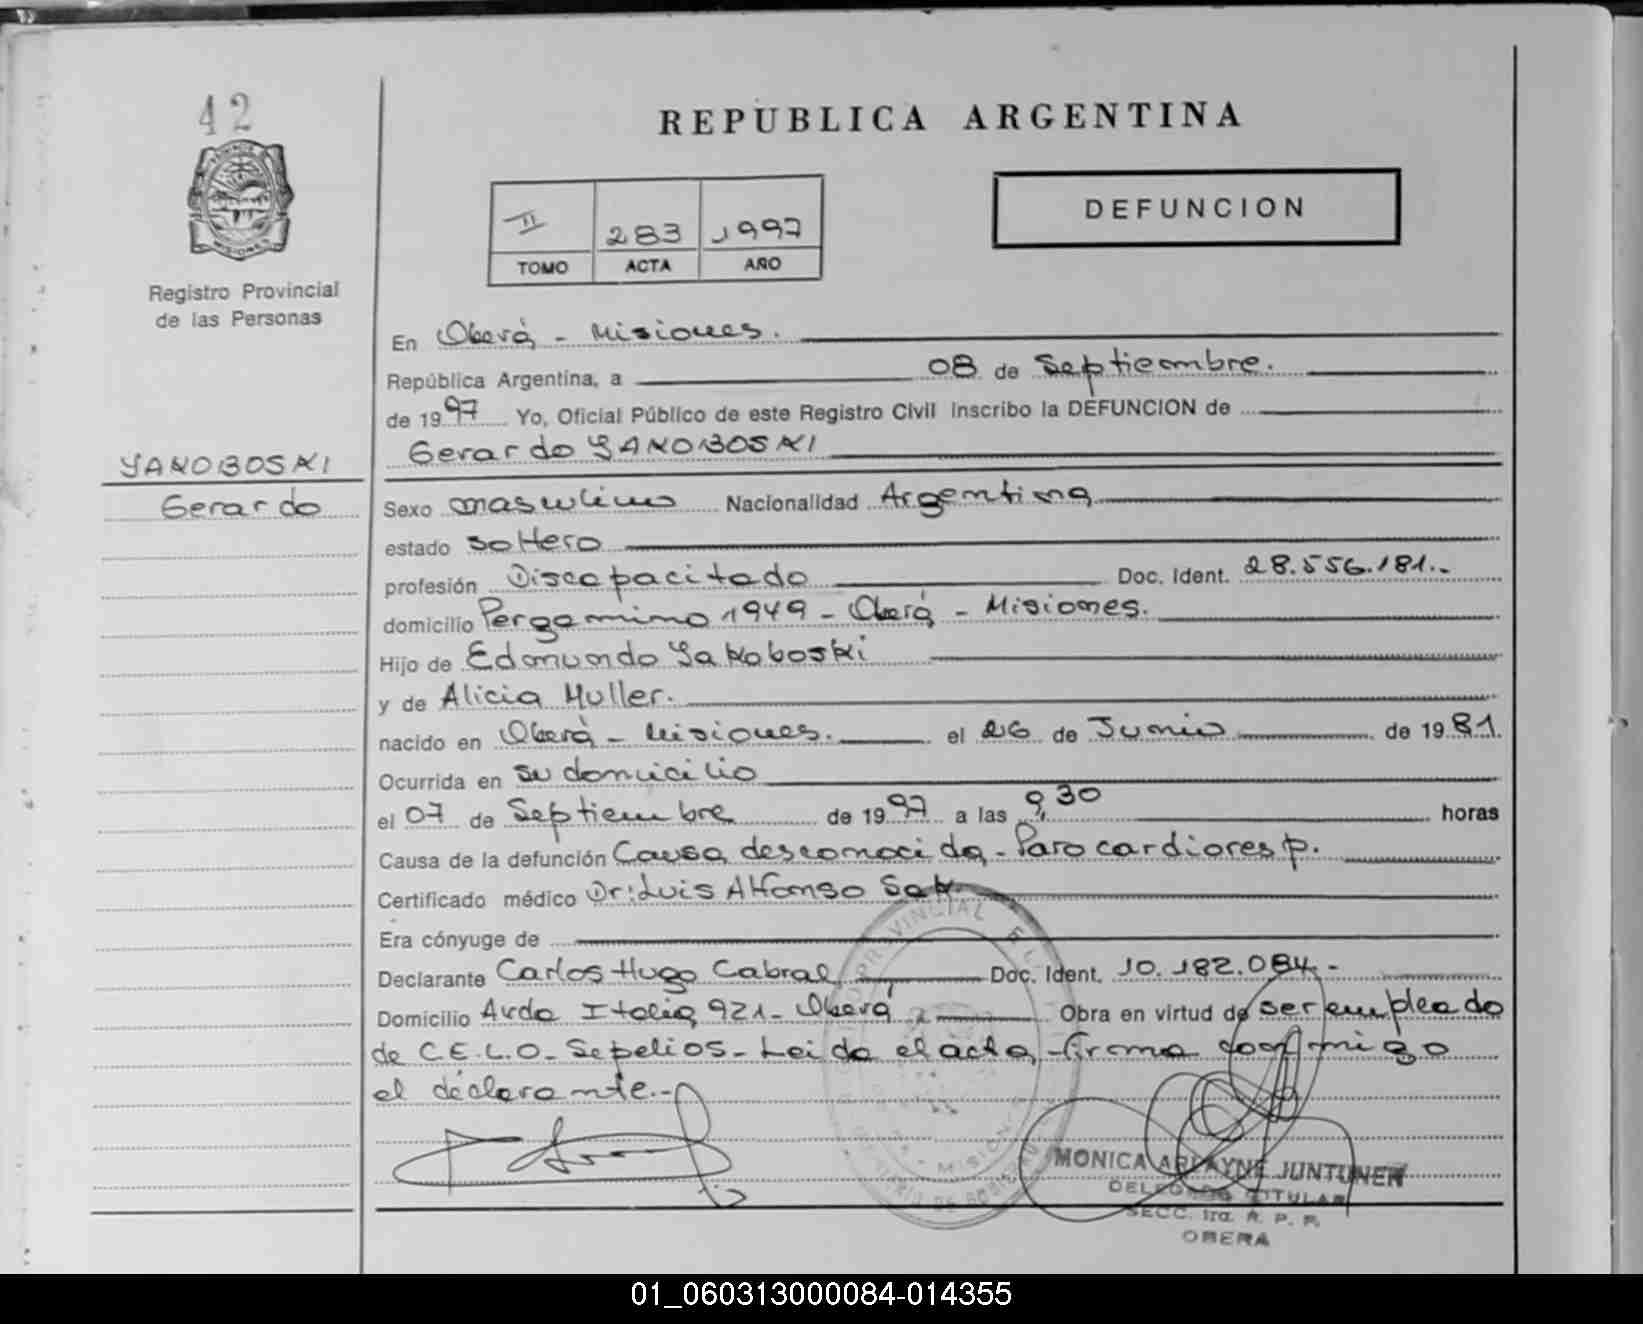 42
REPUBLICA ARGENTINA
II 283 1997
TOMO ACTA AÑO
DEFUNCION
MISIONES
Registro Provincial
de las Personas
En Oberá - Misiones.
República Argentina, a 08 de Septiembre.
de 1997 Yo, Oficial Público de este Registro Civil inscribo la DEFUNCION de
Gerardo YAKOBOSKI
YAKOBOSKI
Gerardo
Sexo masculino Nacionalidad Argentina
estado soltero
profesión Discapacitado Doc. Ident. 28.556.181.-
domicilio Pergamino 1949 - Oberá - Misiones.
Hijo de Edmundo Yakoboski
y de Alicia Muller.
nacido en Oberá - Misiones. el 26 de Junio de 1981.
Ocurrida en su domicilio
el 07 de Septiembre de 1997 a las 9,30 horas
Causa de la defunción Causa desconocida - Paro cardioresp.
Certificado médico Dr: Luis Alfonso
Era cónyuge de
Declarante Carlos Hugo Cabral Doc. Ident. 10.182.084.-
Domicilio Avda Italia 921 - Oberá Obra en virtud de ser empleado
de C.E.L.O. Sepelios - Leida el acta, firma conmigo
el declarante.-
PROVINCIAL
MISIONES
MONICA ARLAYNE JUNTUNEN
DELEGADO TITULAR
SECC. 1ra. R. P. P.
OBERA
01_060313000084-014355